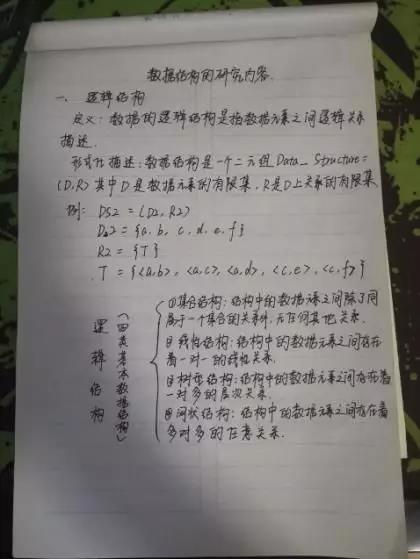 数据结构的研究内容.
一、逻辑结构
定义：数据的逻辑结构是指数据元素之间逻辑关系
描述.
形式化描述：数据结构是一个二元组 Data_Structure=
(D,R) 其中D是数据元素的有限集，R是D上关系的有限集
例： DS2 = (D2, R2)
D2 = {a, b, c, d, e, f}
R2 = {T}
T = {<a,b>, <a,c>, <a,d>, <c,e>, <c,f>}
逻辑结构
(四类基本数据结构)
①集合结构：结构中的数据元素之间除了同
属于一个集合的关系外，无任何其他关系.
②线性结构：结构中的数据元素之间存在
着一对一的线性关系.
③树型结构：结构中的数据元素之间存在着
一对多的层次关系.
④网状结构：结构中的数据元素之间存在着
多对多的任意关系.